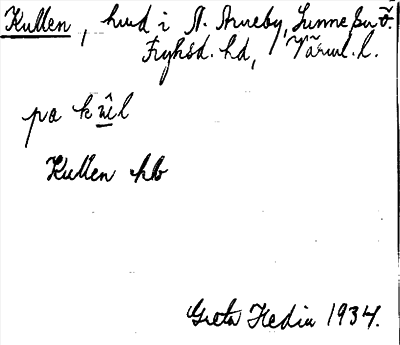 Kullen, hmd i N. Årneby, Sunne sn ö.
Fryksd. hd, Värml. l.
på kûl
Kullen hb
Greta Hedin 1934.